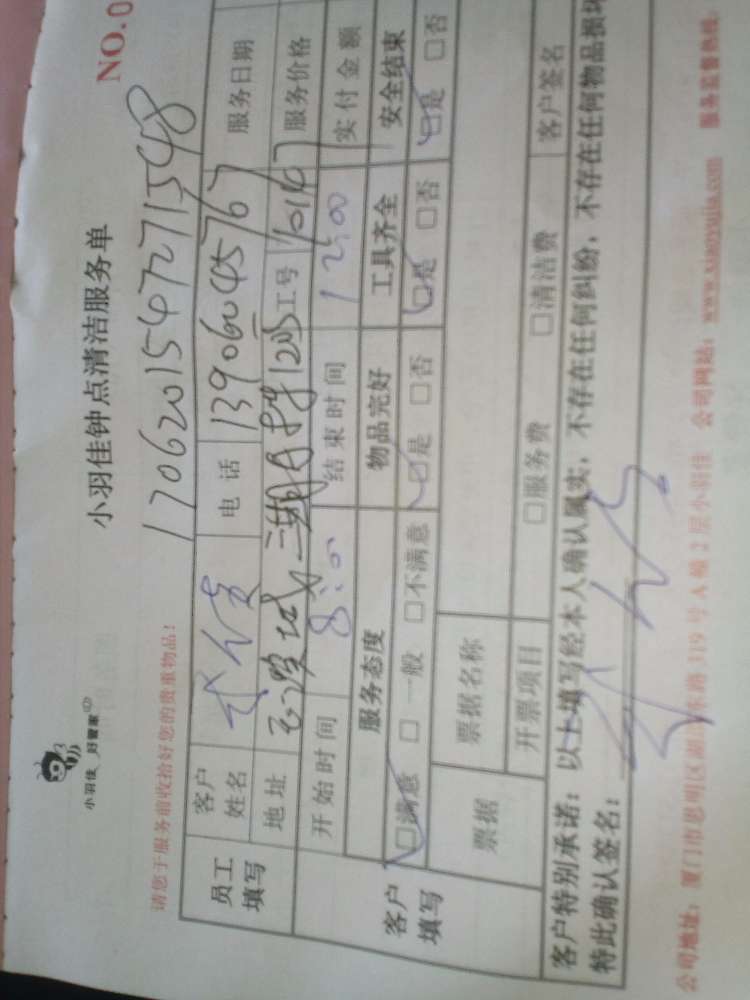 小羽佳 好管家
小羽佳钟点清洁服务单
NO.0
请您于服务前收拾好您的贵重物品!
1706201547271548
员工填写
客户姓名
电话 13906045767
服务日期
地址
工号
服务价格
开始时间 8:00
结束时间 12:00
实付金额
客户填写
服务态度
物品完好
工具齐全
安全结束
□满意 □一般 □不满意
□是 □否
□是 □否
□是 □否
票据
票据名称
开票项目
□服务费
□清洁费
客户签名
客户特别承诺:以上填写经本人确认属实,不存在任何纠纷,不存在任何物品损坏
特此确认签名:
公司地址:厦门市思明区湖滨东路319号A幢2层小羽佳 公司网站:www.xiaoyujia.com 服务监督热线: